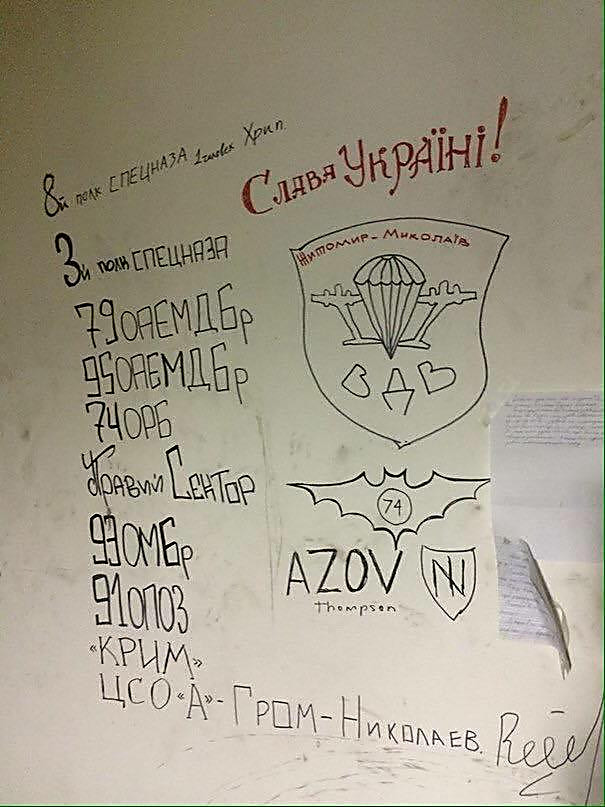 8й полк СПЕЦНАЗА Хрип.
Слава Україні!
3й полк СПЕЦНАЗА
79ОАЕМДБр
95ОАЕМДБр
74ОРБ
Правий Сектор
93ОМБр
91ОПОЗ
«КРИМ»
ЦСО «А» - ГРОМ - НИКОЛАЕВ.
Житомир - Миколаїв
ВДВ
74
AZOV
Thompson